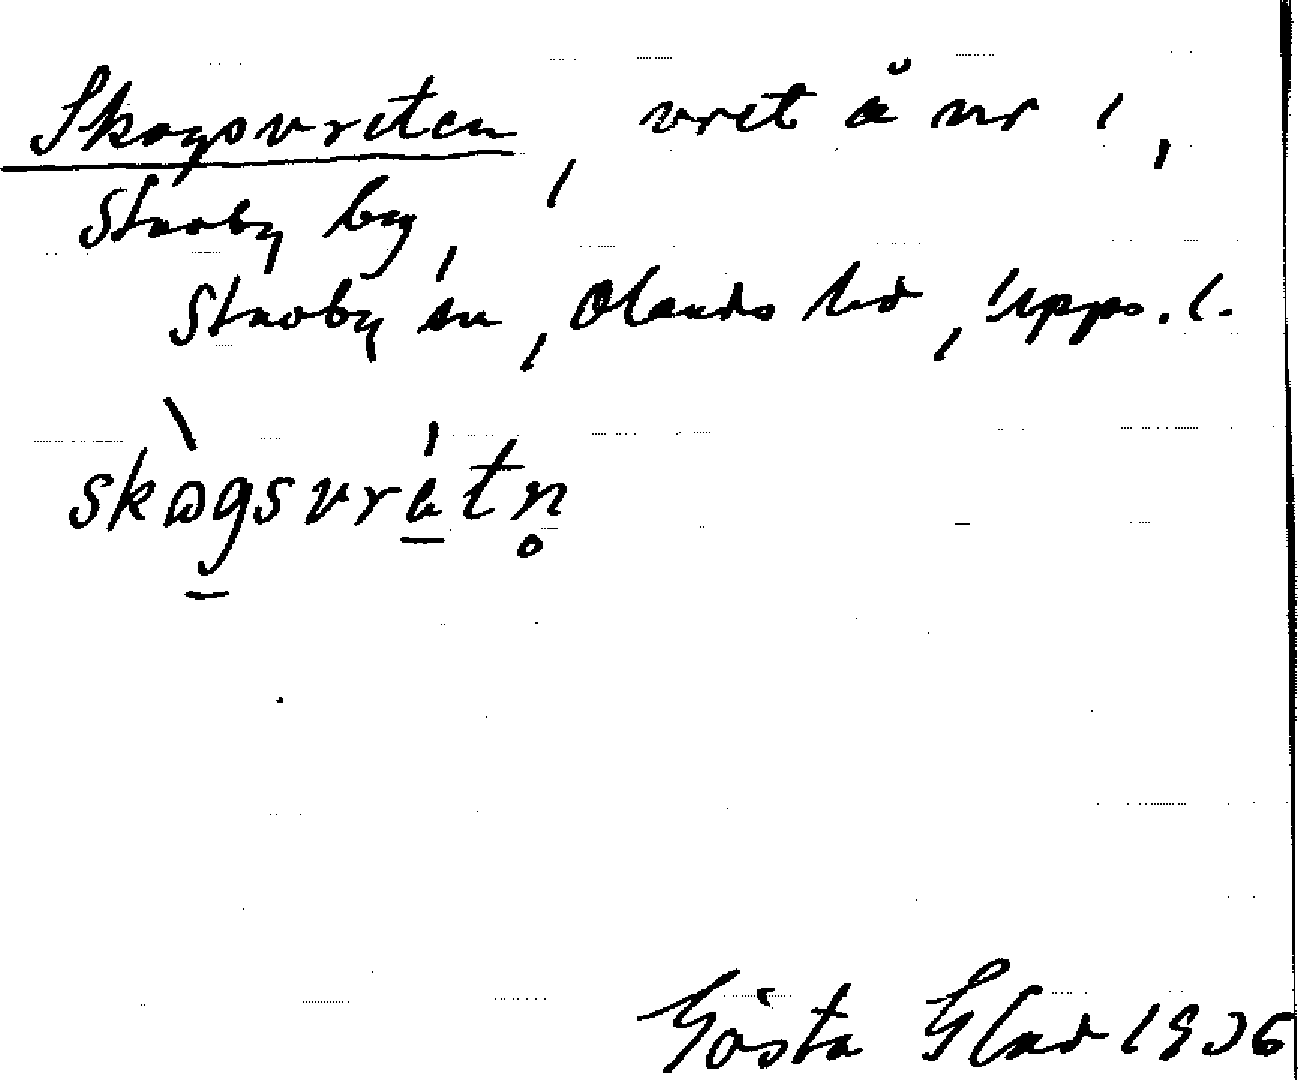 Skogsvreten, vret å nr 1,
Stavby by,
Stavby sn, Olands hd, Upps. l.
skògsvrétn̥
Gösta Blad 1936